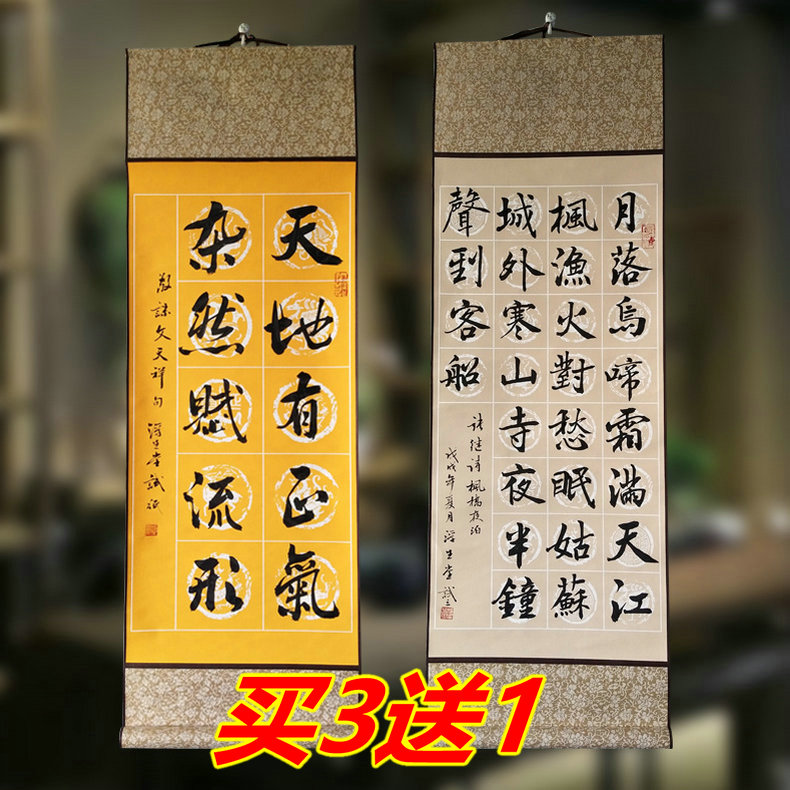 天地有正氣
杂然賦流形
月落烏啼霜滿天江
楓漁火對愁眠姑蘇
城外寒山寺夜半鐘
聲到客船
张继诗楓橋夜泊
戊戌年夏月
文天祥句
买3送1